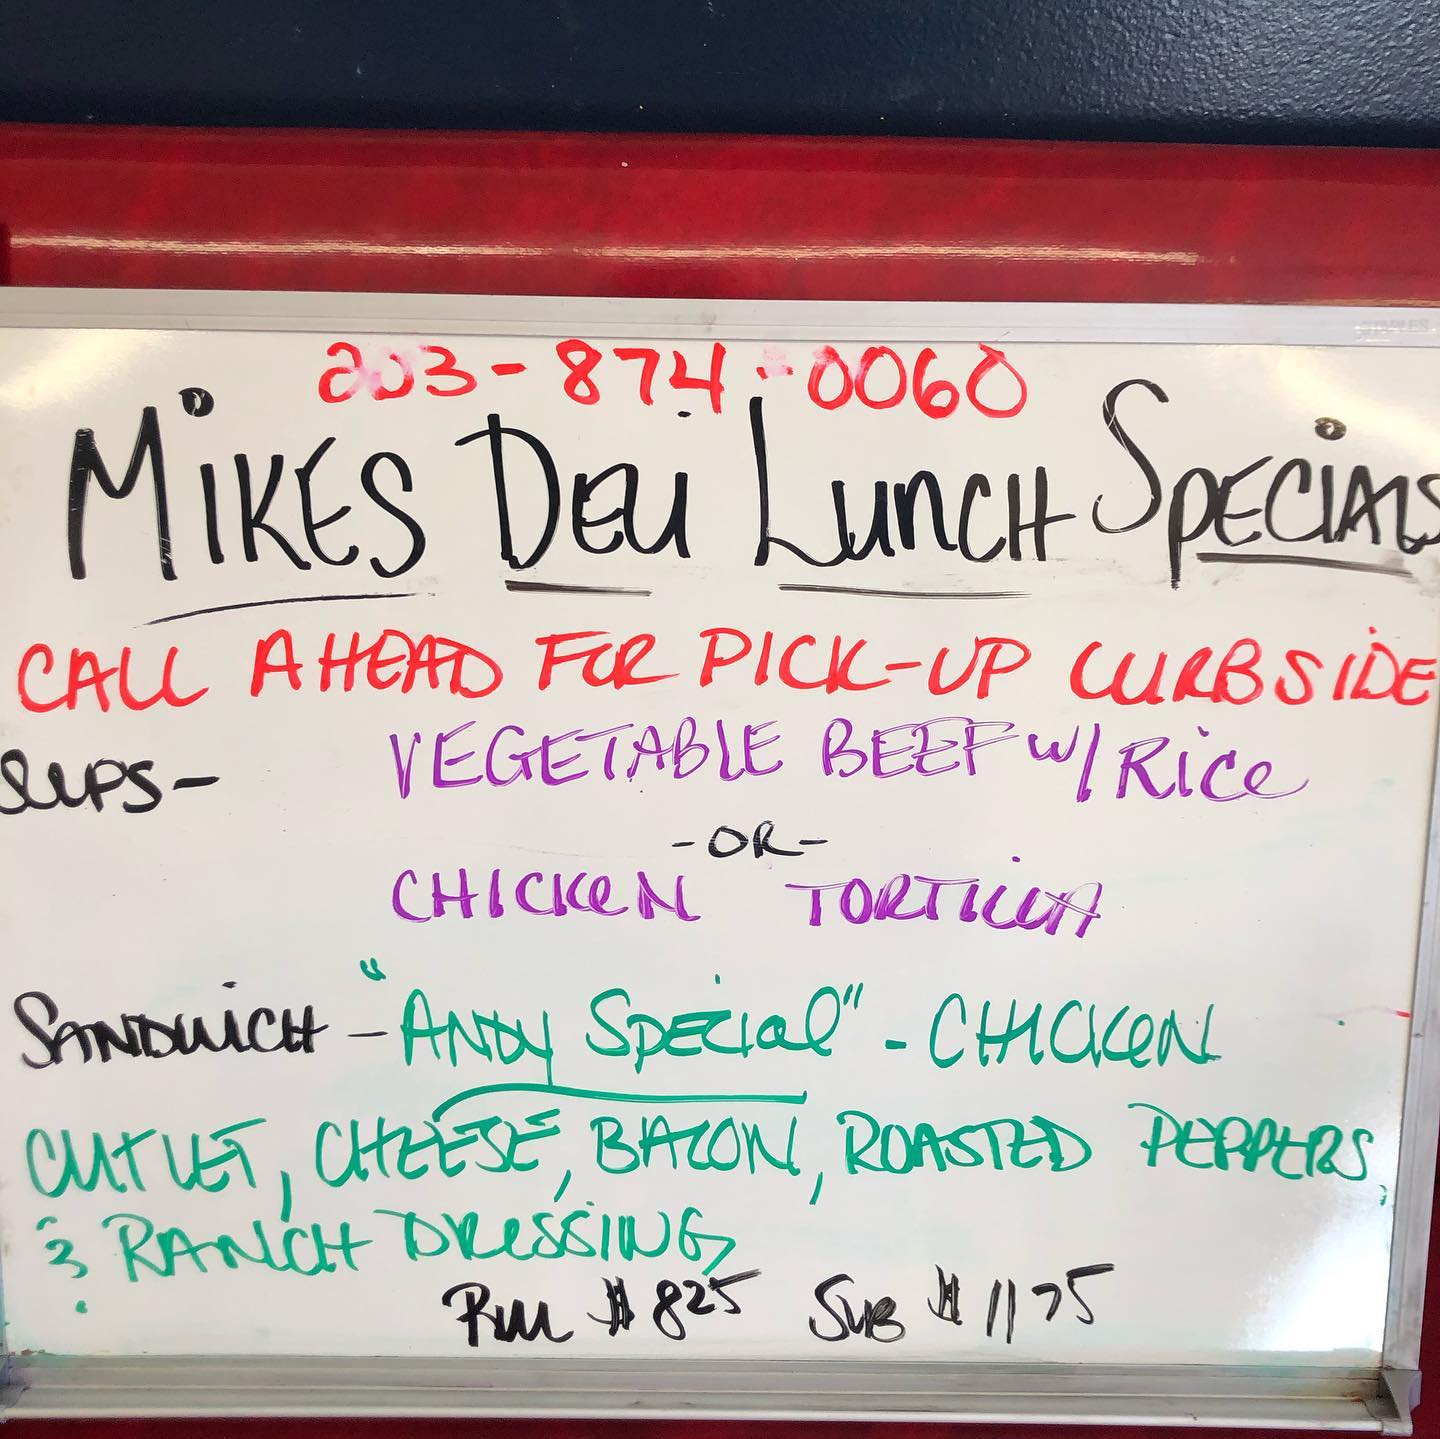 203-874-0060
MIKES DELI LUNCH SPECIALS
CALL AHEAD FOR PICK-UP CURBSIDE
SOUPS- VEGETABLE BEEF W/ RICE
-OR-
CHICKEN TORTILLA
SANDWICH - "ANDY SPECIAL" - CHICKEN
CUTLET, CHEESE, BACON, ROASTED PEPPERS,
& RANCH DRESSING
Roll $825 SUB $1175